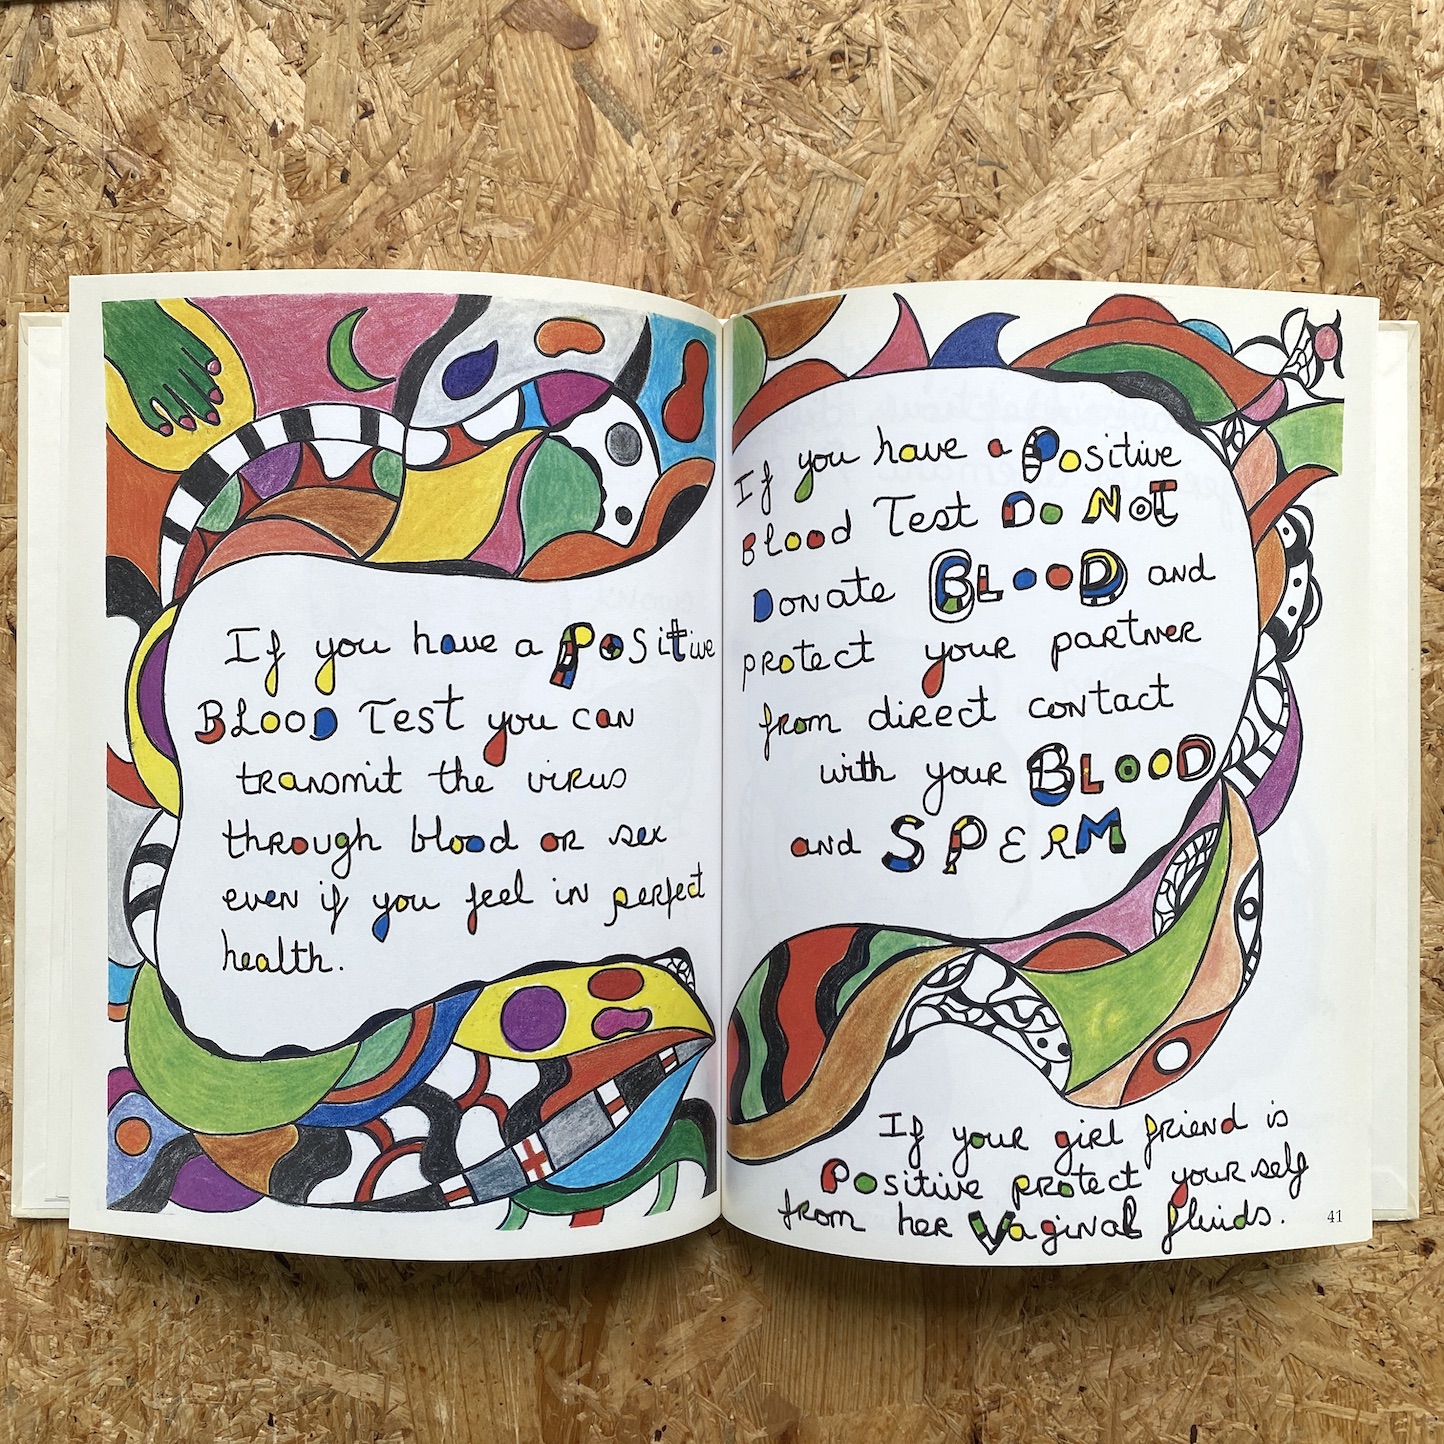 If you have a Positive
BLOOD Test you can
transmit the virus
through blood or sex
even if you feel in perfect
health.
If you have a Positive
Blood Test Do NOT
Donate BLOOD and
protect your partner
from direct contact
with your BLOOD
and SPERM
If your girl friend is
Positive protect your self
from her Vaginal fluids.
41